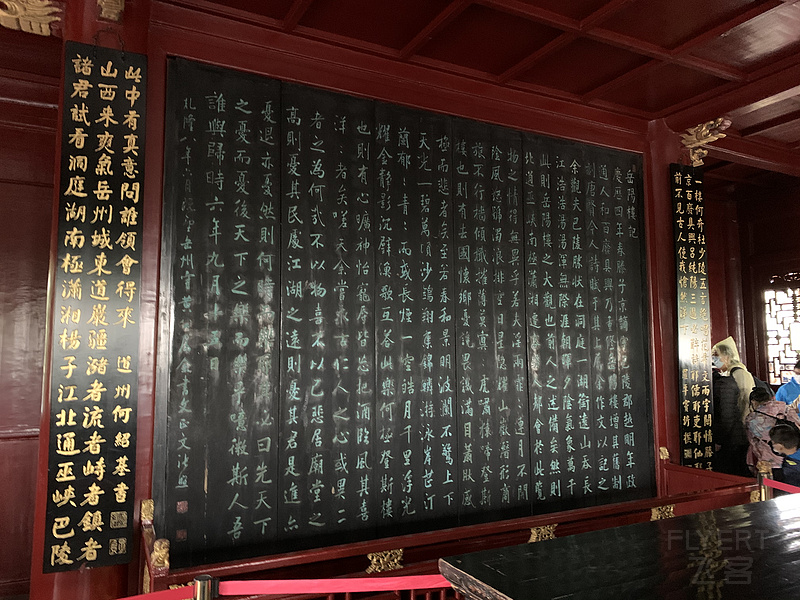 一樓何奇杜少陵五言絕唱范希文兩字關情滕子
京百廢俱興呂純陽三過必醉詩耶儒耶吏耶仙耶
前不見古人使我愴然涕下
岳陽樓記
慶歷四年春滕子京謫守巴陵郡越明年政
通人和百廢具興乃重修岳陽樓增其舊制
刻唐賢今人詩賦于其上屬余作文以記之
余觀夫巴陵勝狀在洞庭一湖銜遠山吞長
江浩浩湯湯橫無際涯朝暉夕陰氣象萬千
此則岳陽樓之大觀也前人之述備矣然則
北通巫峽南極瀟湘遷客騷人多會於此覽
物之情得無異乎若夫霪雨霏〻連月不開
陰風怒號濁浪排空日星隱耀山岳潛形商
旅不行檣傾楫摧薄暮冥〻虎嘯猿啼登斯
樓也則有去國懷鄉憂讒畏譏滿目蕭然感
極而悲者矣至若春和景明波瀾不驚上下
天光一碧萬頃沙鷗翔集錦鱗游泳岸芷汀
蘭郁〻青〻而或長煙一空皓月千里浮光
耀金靜影沉璧漁歌互答此樂何極登斯樓
也則有心曠神怡寵辱皆忘把酒臨風其喜
洋〻者矣嗟夫余嘗求古仁人之心或異二
者之為何哉不以物喜不以己悲居廟堂之
高則憂其民處江湖之遠則憂其君是進亦
憂退亦憂然則何時而樂耶其必曰先天下
之憂而憂後天下之樂而樂乎噫微斯人吾
誰與歸時六年九月十五日
乾隆八年六月
諸君試看洞庭湖南極瀟湘揚子江北通巫峽巴陵
山西來爽氣岳州城東道巖疆瀦者流者峙者鎮者
此中有真意問誰領會得來 道州何紹基書
FLYERT
飞客